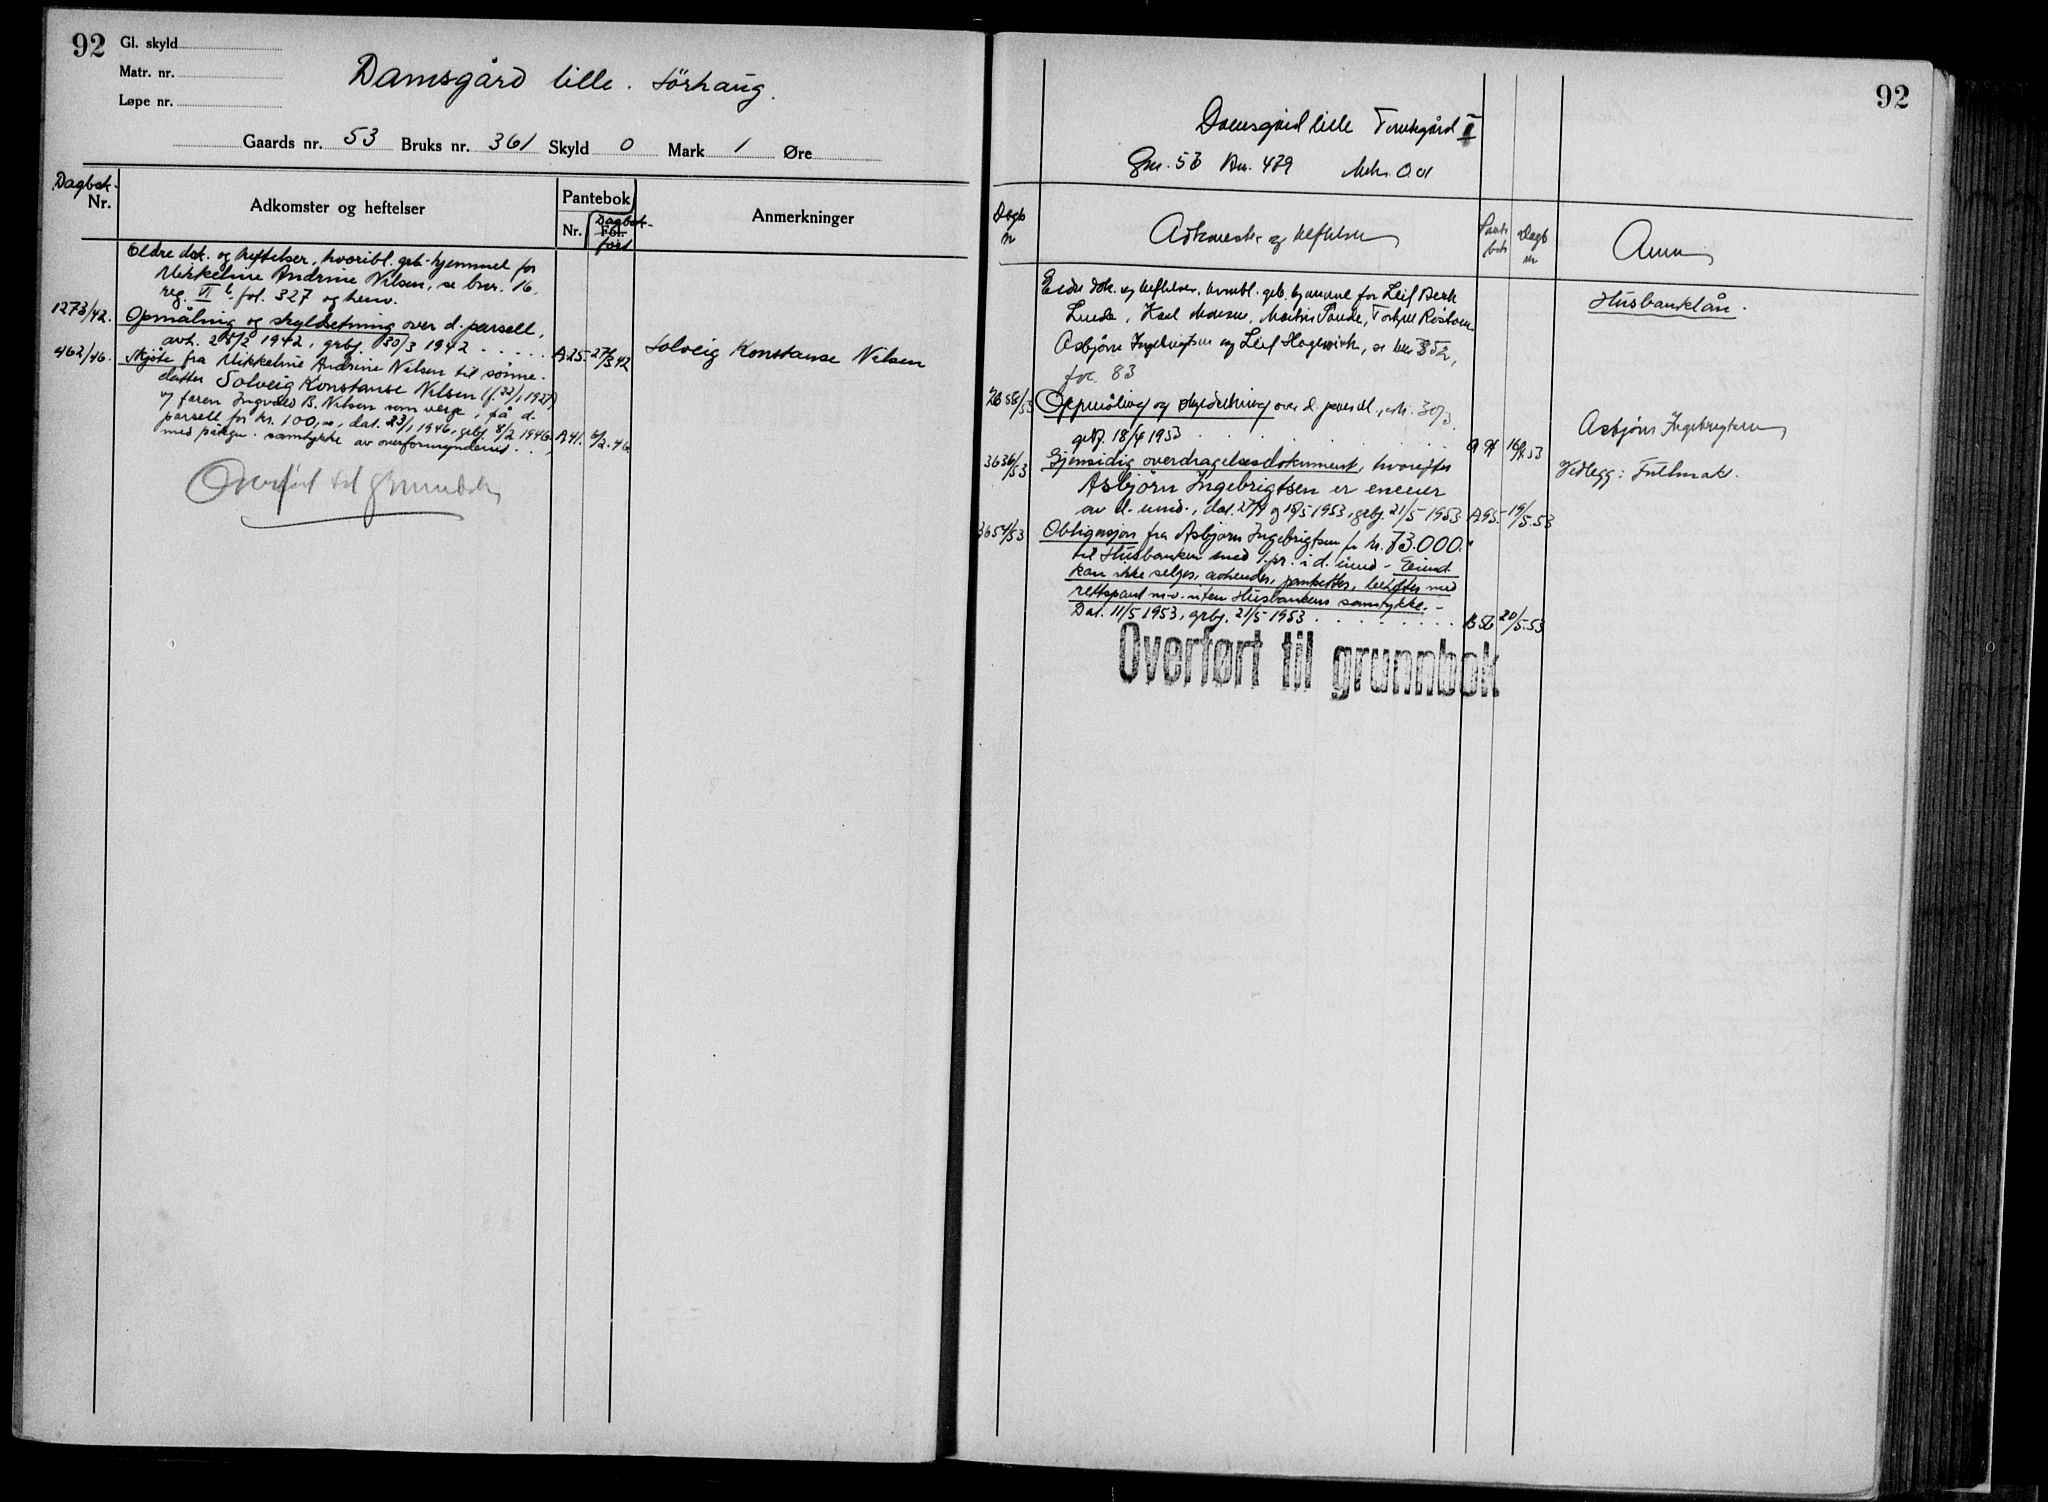 92
Gl. skyld
Matr. nr.
Løpe nr.
Damsgård lille. Sörhaug.
Gaards nr. 53 Bruks nr. 361 Skyld 0 Mark 1 Øre
Dagbok-
Nr.
Adkomster og heftelser
Pantebok
Nr.
Fol.
Dagbok-
ført
Anmerkninger
Eldre dok. og heftelser, hvoribl. grb.-hjemmel for
Mikkeline Andrine Nilsen, se bnr. 16,
reg. VI b. fol. 327 og henv.
1273/42. Opmåling og skyldsetning over d. parsell,
avh. 25/2 1942, grbj. 30/3 1942 . . . . . A.25. 27/3 42
462/46. Skjöte fra Mikkeline Andrine Nilsen til sönne-
datter Solveig Konstanse Nilsen (f. 22/1 1927)
v/ faren Ingvald B. Nilsen som verge, på d.
parsell for kr. 100,00, dat. 23/1 1946, grbj. 8/2 1946
med påtegn. samtykke av overformynderiet . . , A41. 6/2.46
Solveig Konstanse Nilsen
Overført til grunnbok
92
Damsgård lille Torvtegård II
Gnr. 53 Bnr. 479 Mrk. 0.01
Dagb
nr
Adkomster og heftelser
Pante
bok
Dagb
nr
Anm
Eldre dok. og heftelser, hvoribl. grb. hjemmel for Leif Berk
Lunde, Karl Monsen, Martin Sande, Torkjell
Asbjörn Ingebrigtsen og Leif Hagervik, se bnr 352,
fol. 83
Husbanklån.
2658/53 Oppmåling og skylddeling over d. parsell, avh. 30/3
grbj. 18/4 1953 . . . . . A 94 16/4.53
Asbjörn Ingebrigtsen
3636/53 Gjensidig overdragelsesdokument, hvorefter
Asbjörn Ingebrigtsen er eneeier
av d. eiend., dat. 27/4 og 18/5 1953, grbj. 21/5 1953 A95. 19/5.53
Vedlegg: Fullmakt.
3654/53 Obligasjon fra Asbjörn Ingebrigtsen for kr. 73.000.-
til Husbanken med 1. pr. i d. eiend - Eiend.
kan ikke selges, avhendes, pantsettes, beheftes med
rettspant m.v. uten Husbankens samtykke. -
Dat. 11/5 1953, grbj. 21/5 1953 . . . . . . . . . B56 20/5.53
Overført til grunnbok